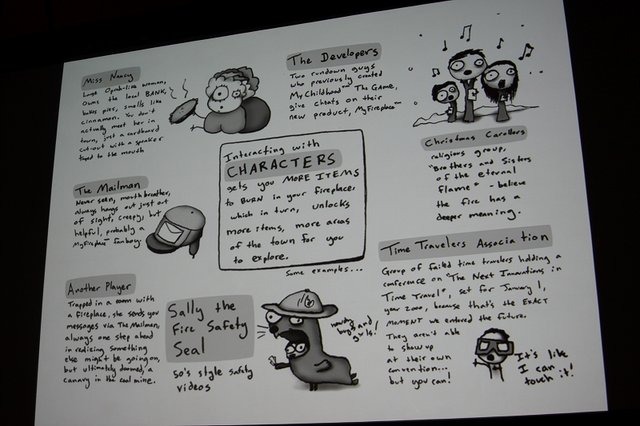 Miss Nancy
Large Oprah-like woman,
Owns the local BANK,
bakes pies, smells like
cinnamon. You don't
actually meet her in
town, just a cardboard
cut-out with a speaker
taped to the mouth
The Developers
Two rundown guys
who previously created
My Childhood™ The Game,
give cheats on their
new product, MyFireplace™
Christmas Carollers
religious group,
"Brothers and Sisters
of the eternal
Flame" - believe
the fire has a
deeper meaning.
Interacting with
CHARACTERS
gets you MORE ITEMS
to BURN in your fireplace.
which in turn, unlocks
more items, more areas
of the town for you
to explore.
Some examples...
The Mailman
Never seen, mouth breather,
always hangs out just out
of sight, creepy, but
helpful, probably a
MyFireplace™ fanboy.
Time Travelers Association
Group of failed time travelers holding a
conference on "The Next Innovations in
Time Travel", set for January 1,
year 2000, because that's the EXACT
MOMENT we entered the future.
They aren't able
to show up
at their own
convention...
but you can!
It's like
I can
touch it!
Another Player
Trapped in a room with
a fireplace, she sends you
messages via The Mailman,
always one step ahead
in realizing something
else might be going on,
but ultimately doomed, a
canary in the coal mine.
Sally the
Fire Safety
Seal
50's style safety
videos
howdy
boys and
girls!